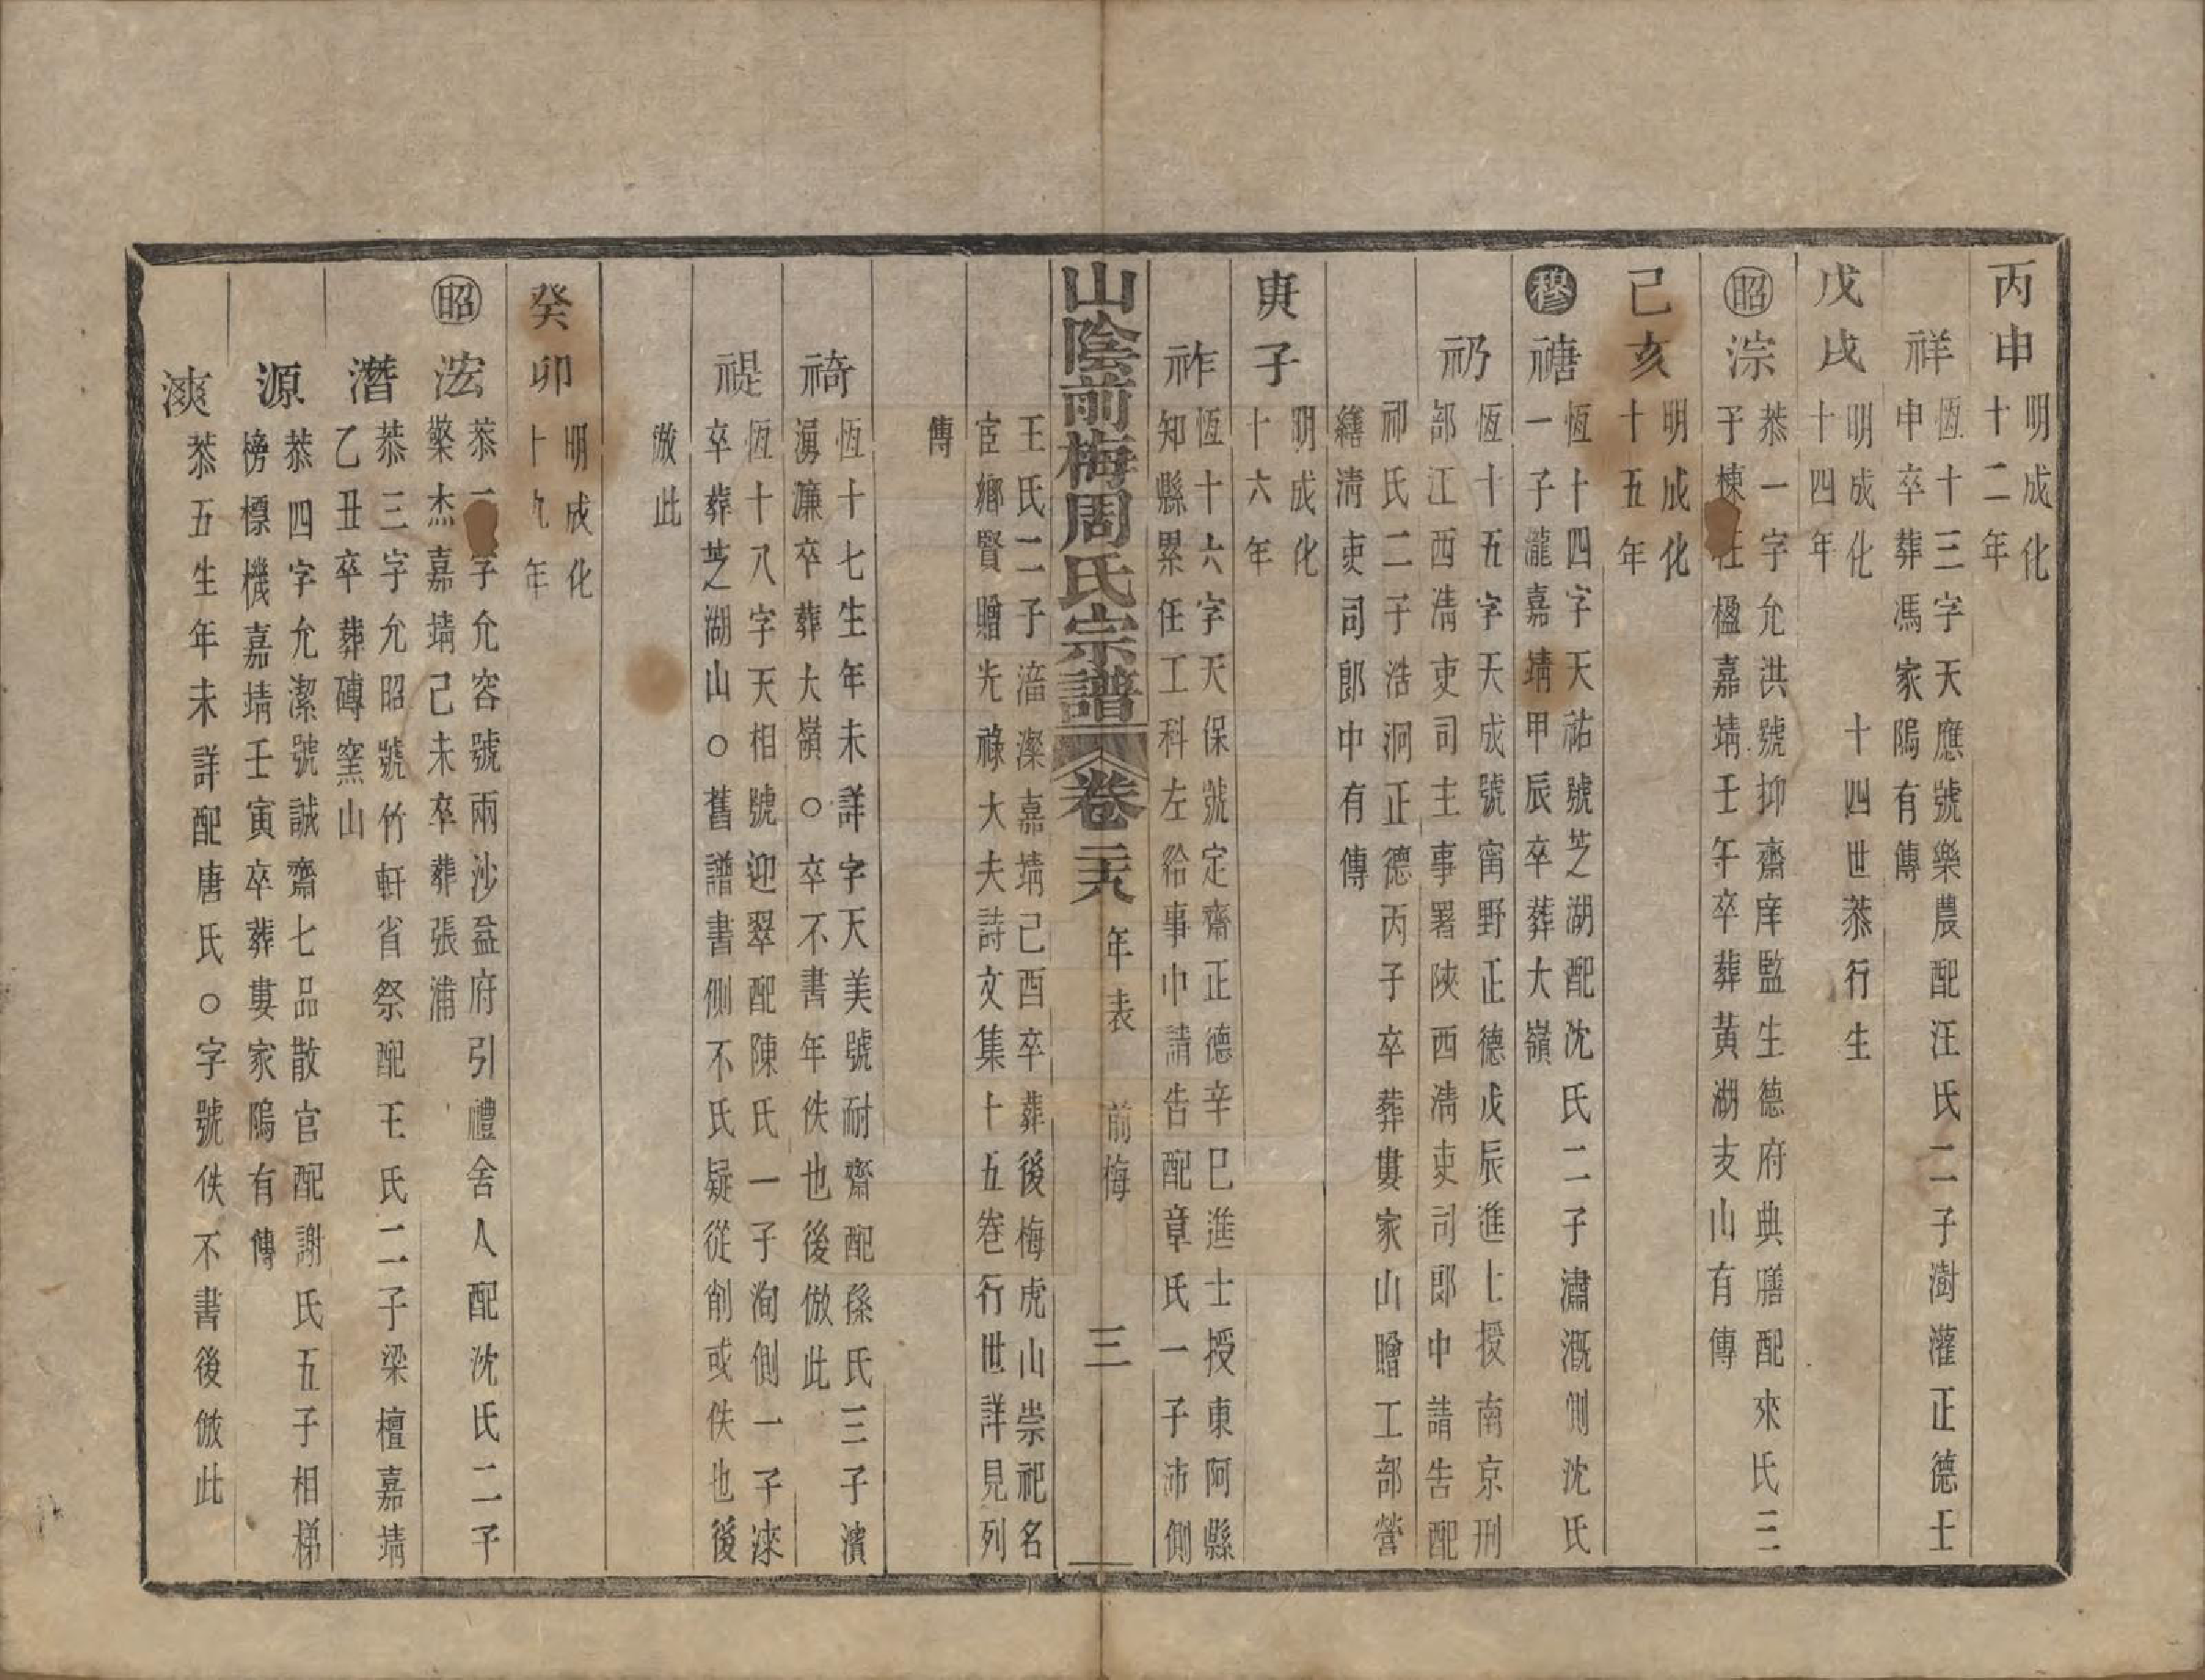 丙申
明成化
十二年
祥
恆十三字天應號樂農配汪氏二子澍灌正德壬
申卒葬馮家隖有傳
戊戌
明成化
十四年
十四世恭行生
昭淙
恭一字允洪號抑齋庠監生德府典膳配來氏三
子棟 楹嘉靖壬午卒葬黃湖支山有傳
己亥
明成化
十五年
穆禟
恆十四字天祐號芝湖配沈氏二子瀟溉側沈氏
一子瀧嘉靖甲辰卒葬大嶺
礽
恆十五字天成號甯野正德戊辰進士授南京刑
部江西清吏司主事署陝西清吏司郎中請告配
祁氏二子浩泂正德丙子卒葬婁家山贈工部營
繕清吏司郎中有傳
庚子
明成化
十六年
祚
恆十六字天保號定齋正德辛巳進士授東阿縣
知縣累任工科左給事中請告配章氏一子沛側
山陰前梅周氏宗譜 卷二六 年表 前梅 三
王氏二子湽澯嘉靖己酉卒葬後梅虎山崇祀名
宦鄉賢贈先祿大夫詩文集十五卷行世詳見列
傳
禞
恆十七生年未詳字天美號耐齋配孫氏三子濱
漘濂卒葬大嶺○卒不書年佚也後倣此
禔
恆十八字天相號迎翠配陳氏一子洵側一子淶
卒葬芝湖山○舊譜書側不氏疑從削或佚也後
倣此
癸卯
明成化
十九年
昭浤
恭二字允容號兩沙益府引禮舍人配沈氏二子
檠杰嘉靖己未卒葬張浦
濳
恭三字允昭號竹軒省祭配王氏二子梁檀嘉靖
乙丑卒葬磚窯山
源
恭四字允潔號誠齋七品散官配謝氏五子相梯
榜標機嘉靖壬寅卒葬婁家隖有傳
漺
恭五生年未詳配唐氏○字號佚不書後倣此